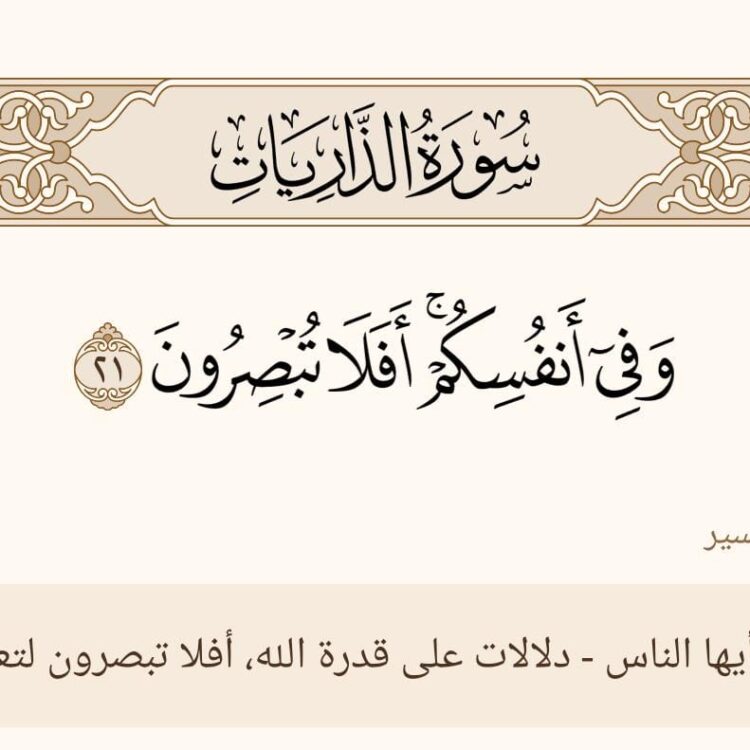 سُورَةُ الذَّارِيَاتِ
وَفِيٓ أَنفُسِكُمۡۚ أَفَلَا تُبۡصِرُونَ ٢١
أيها الناس - دلالات على قدرة الله، أفلا تبصرون